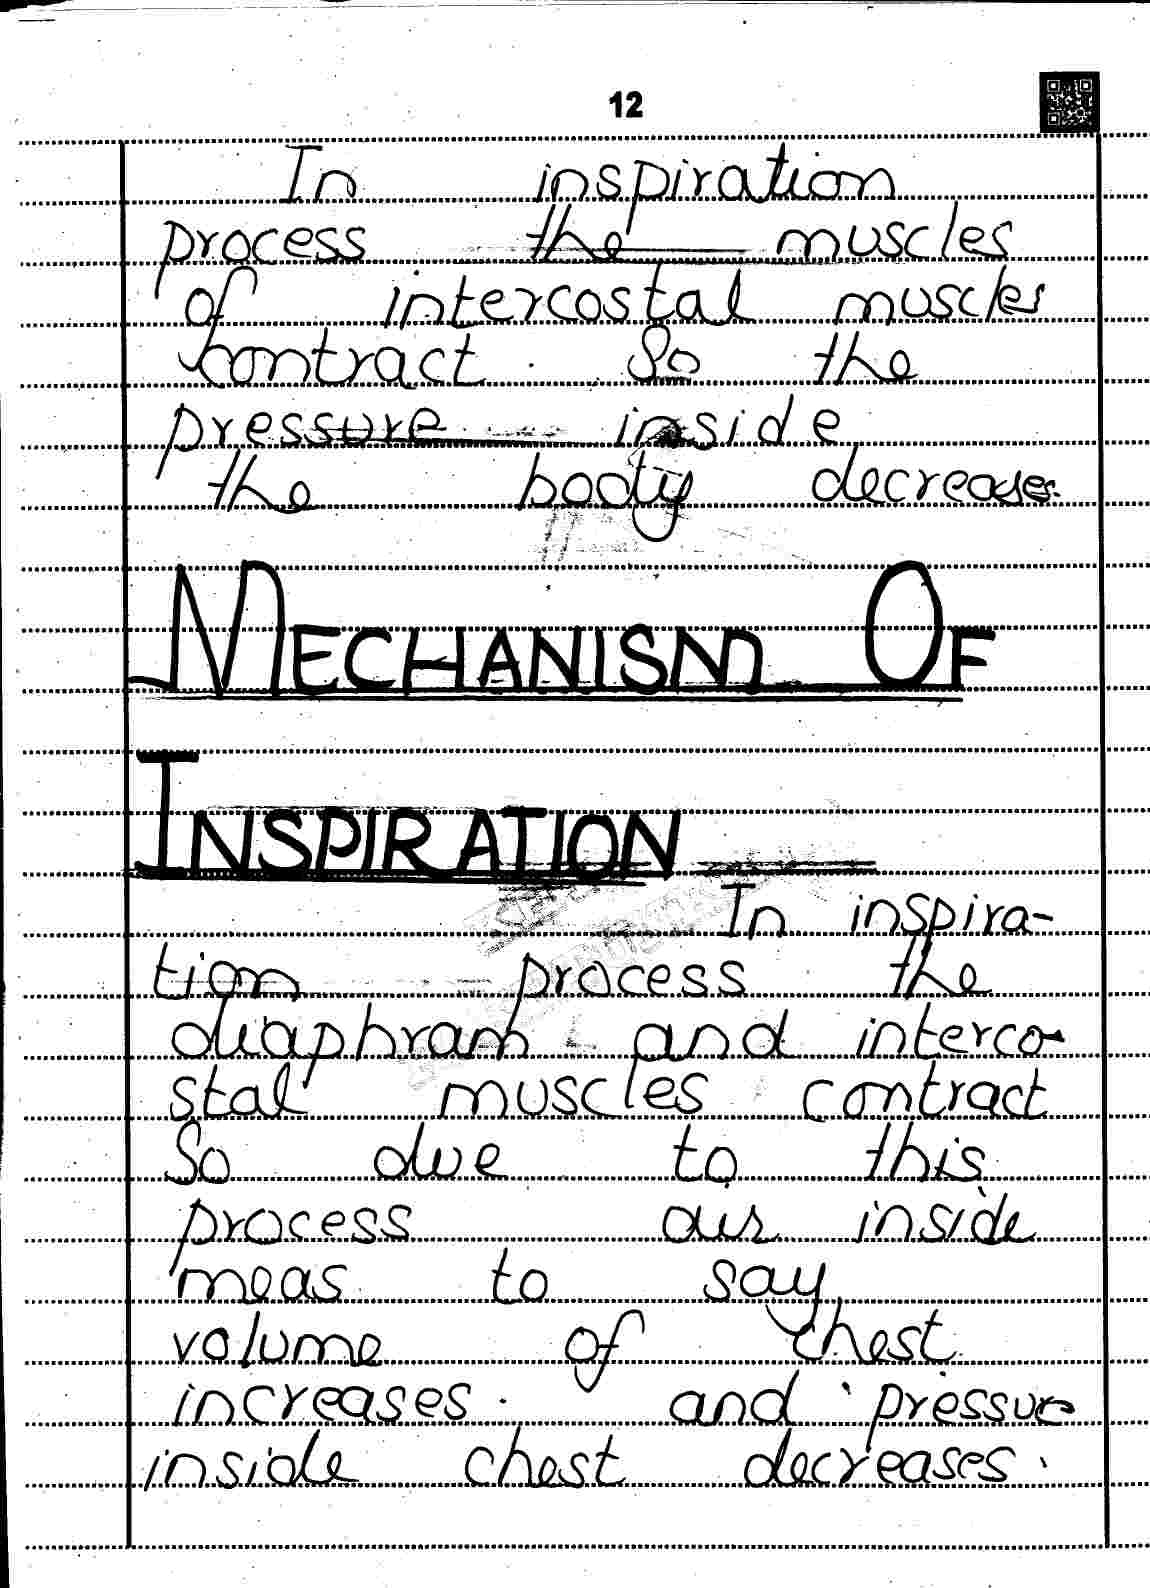 12
In inspiration
process the muscles
of intercostal muscles
contract. So the
pressure inside
the body decreases.
MECHANISM OF
INSPIRATION
In inspira-
tion process the
diaphram and interco-
stal muscles contract
So due to this
process our inside
meas to say
volume of chest
increases. and pressure
inside chest decreases.